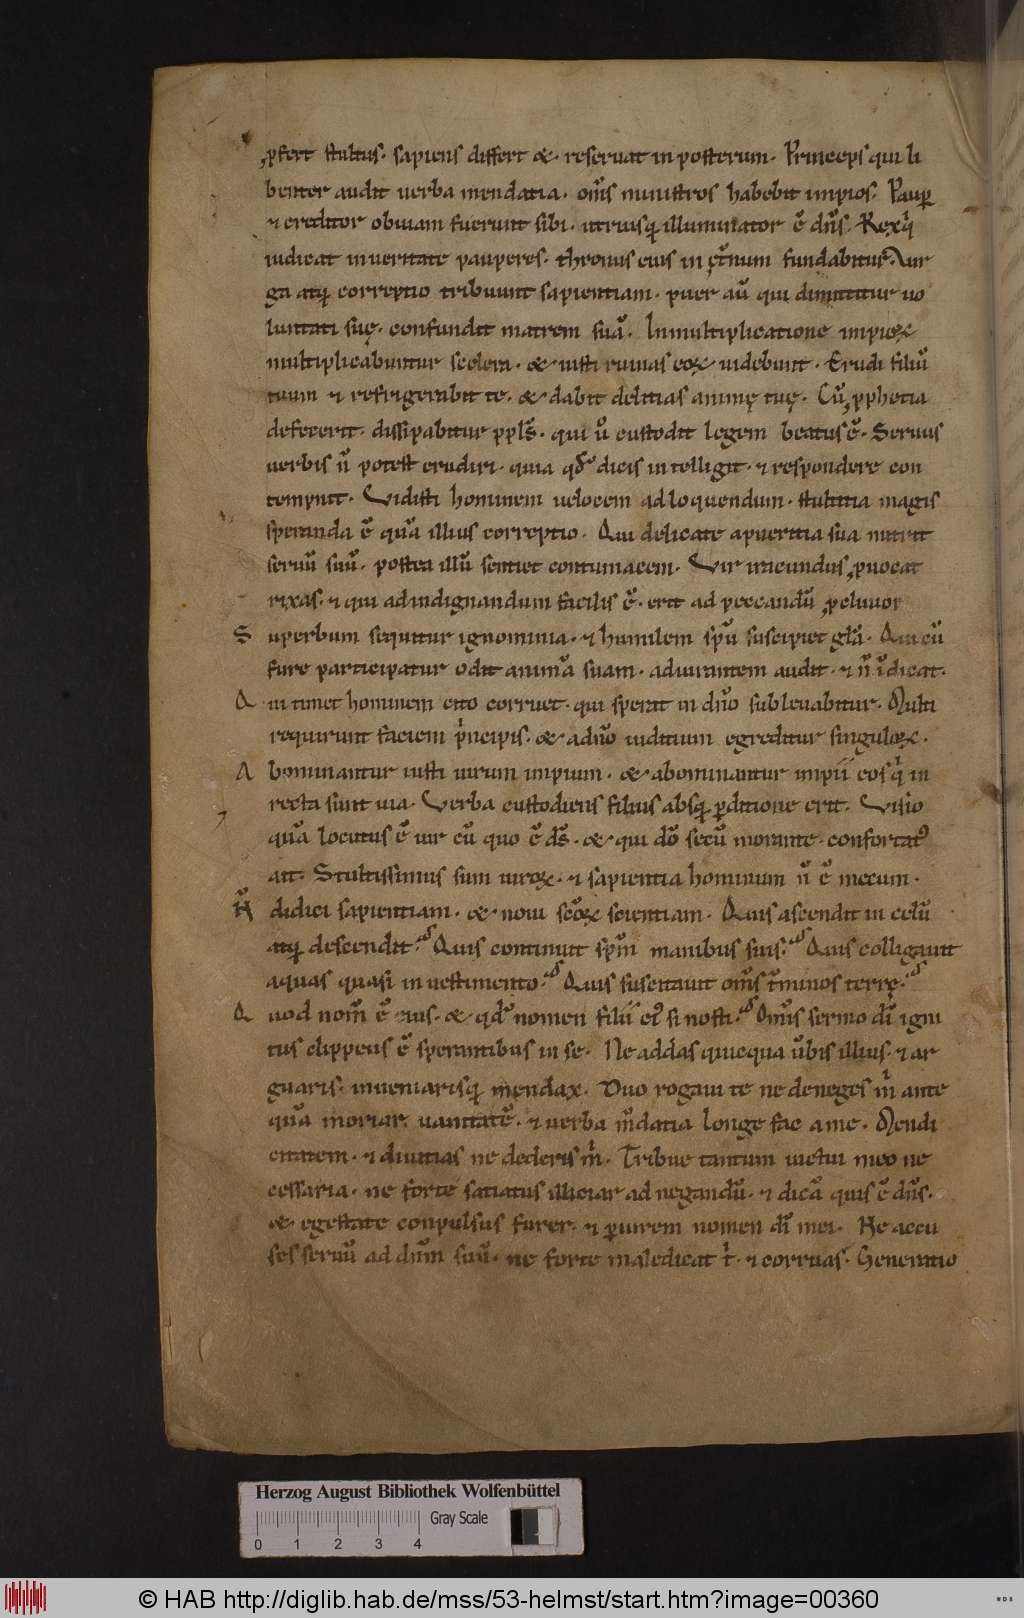 ꝓfert stultus. sapiens differt &. reseruat in posterum. Princeps qui li
benter audit uerba mendatia. om̄s ministros habebit impios. Paup̄
⁊ creditor obuiam fuerunt sibi. utriusq; illuminator ē dn̄s. Rex q̇
iudicat in ueritate pauperes. thronus eius in ęt̄num fundabitur. Uir
ga atq; correptio tribuunt sapientiam. puer au̅ qui dimittitur uo
luntati suę. confundit matrem suā. In multiplicatione impioꝝ
multiplicabuntur scelera. & iusti ruinas eoꝝ uidebunt. Erudi filiū
tuum ⁊ refrigerabit te. & dabit delitias animę tuę. Cū ꝓphetia
defecerit. dissipabitur ppls̄. qui u̅ custodit legem beatus ē. Seruus
uerbis n̄ potest erudiri. quia qd̄ dicis intelligit. ⁊ respondere con
tempnit. Vidisti hominem uelocem ad loquendum. stultitia magis
speranda ē quā illius correptio. Qui delicate a pueritia sua nutrit
seruū suū. postea illū sentiet contumacem. Vir iracundus ꝓuocat
rixas. ⁊ qui ad indignandum facilis ē. erit ad peccandū ꝓcliuior
S uperbum sequitur ignominia. ⁊ humilem sp̄u suscipiet gl̄a. Qui cū
fure participatur odit animā suam. adiurantem audit. ⁊ n̄ īdicat.
Q ui timet hominem cito corruet. qui sperat in dn̄o subleuabitur. Multi
requirunt faciem p̍ncipis. & a dn̄o iuditium egreditur singuloꝝ.
A bominantur iusti uirum impium. & abominantur impii eos q̍ in
recta sunt uia. Verba custodiens filius absq; ꝑditione erit. Visio
quā locutus ē uir cū quo ē ds̄. & qui dō secū morante. confortatꝰ
ait. Stultissimus sum uiroꝝ. ⁊ sapientia hominum n̄ ē mecum.
N̄ didici sapientiam. & noui sc̄oꝝ scientiam. Quis ascendit in celū
atq; descendit. Quis continuit sp̄m manibus suis. Quis colligauit
aquas quasi in uestimento. Quis suscitauit om̄s t̄minos terrę.
Q uod nom̄ ē eius. & qd̄ nomen filii eiꝰ si nosti. Om̄is sermo dī igni
tus clippeus ē sperantibus in se. Ne addas quicquā u̅bis illius. ⁊ ar
guaris. inueniarisq; mendax. Duo rogaui te ne deneges m̍ ante
quā moriar. uanitatē. ⁊ uerba m̄datia longe fac a me. Mendi
citatem. ⁊ diuitias ne dederis m̍. Tribue tantum uictui meo ne
cessaria. ne forte satiatus illiciar ad negandū. ⁊ dicā quis ē dn̄s.
&. egestate conpulsus furer. ⁊ ꝑiurem nomen dī mei. Ne accu
ses seruū ad dn̄m suū. ne forte maledicat t̍. ⁊ corruas. Generatio
Herzog August Bibliothek Wolfenbüttel
Gray Scale
0 1 2 3 4
© HAB http://diglib.hab.de/mss/53-helmst/start.htm?image=00360